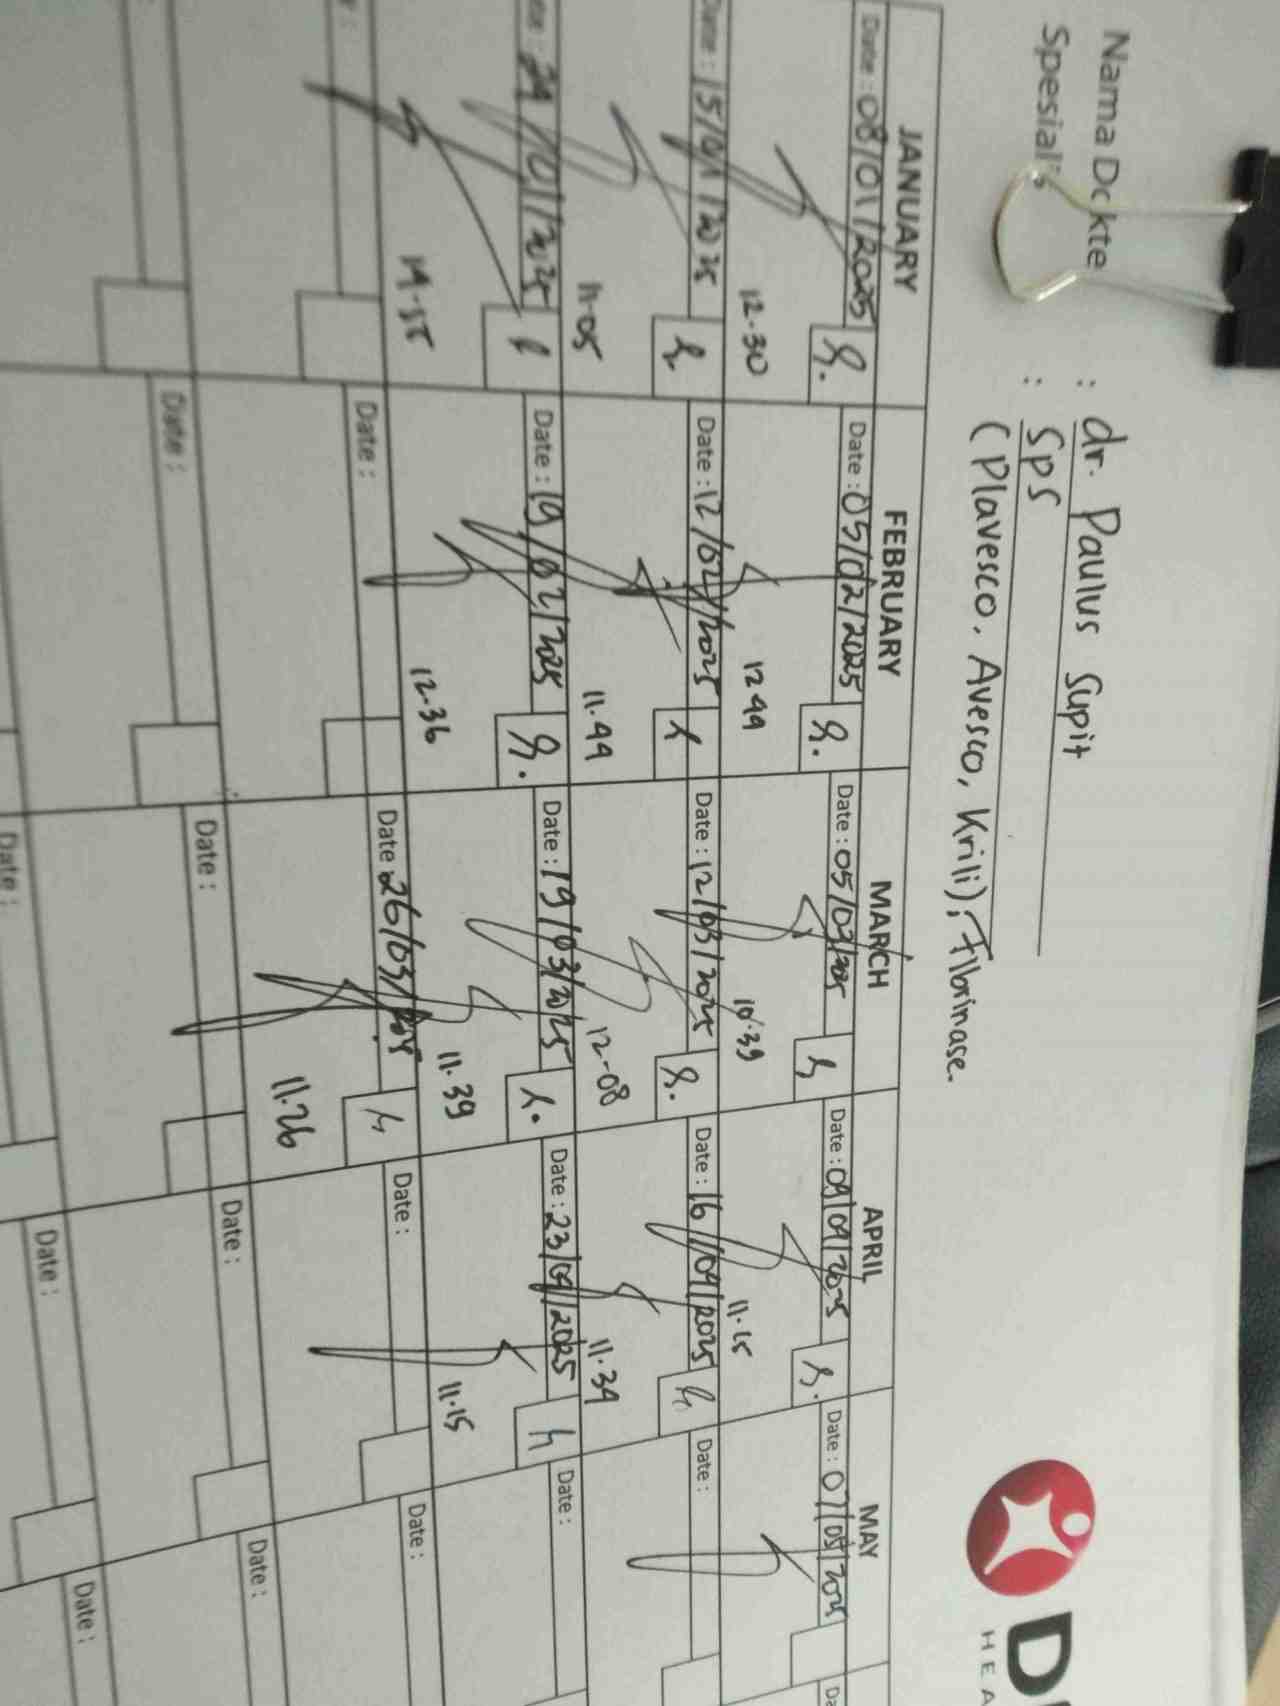 Nama Dokte : dr. Paulus Supit
Spesialis : SpS
(Plavesco, Avesco, Krili), Fibrinase.
HEA
JANUARY FEBRUARY MARCH APRIL MAY
Date : 08/01/2025 Date : 05/02/2025 Date : 05/03/2025 Date : 09/04/2025 Date : 07/05/2025 Da
12.30 12 44 10.39 11.15
Date : 15/01/2025 Date : 12/02/2025 Date : 12/03/2025 Date : 16/04/2025 Date :
11.05 11.44 12-08 11.34
Date : 19/02/2025 Date : 19/03/2025 Date : 23/04/2025 Date :
14.55 12.36 11.39 11.15
Date : Date 26/03/2025 Date : Date :
11.26
Date : Date : Date : Date :
Date : Date : Date :